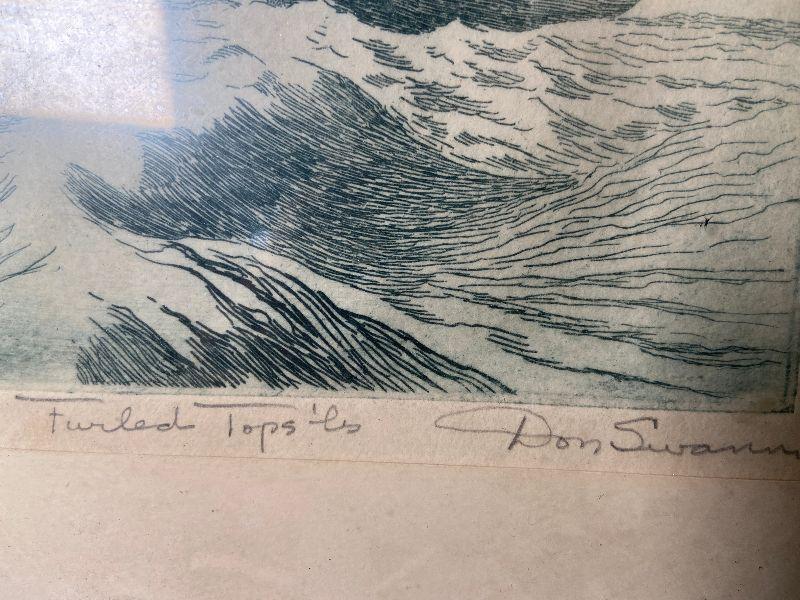 Furled Tops'ls Don Swann